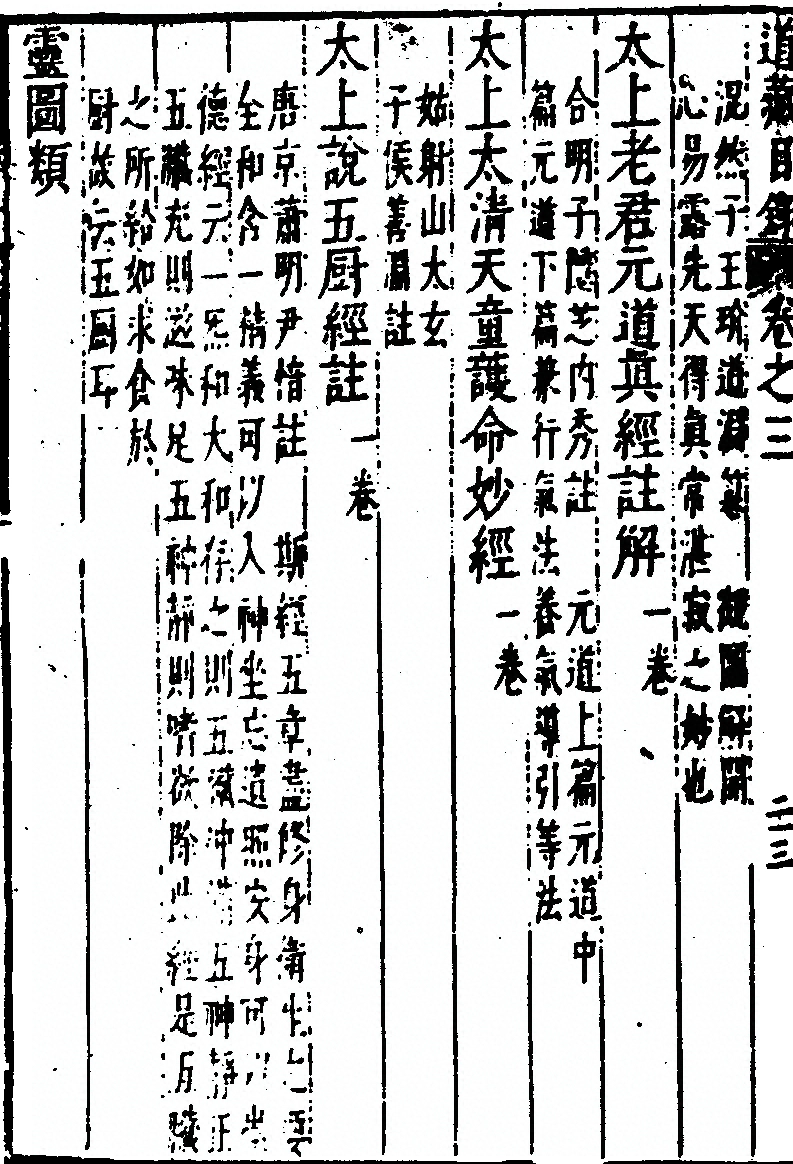 道藏目錄卷之三 二十三
混然子王玠道淵纂 凝圖解開
心易露先天得眞常湛寂之妙也
太上老君元道眞經註解 一卷
合明子隱芝內秀註 元道上篇元道中
篇元道下篇兼行氣法養氣導引等法
太上太清天童護命妙經 一卷
姑射山太玄
子侯善淵註
太上說五厨經註 一卷
唐京蕭明尹愔註 斯經五章蓋修身衛生之要
全和含一精義可以入神坐忘遺照安身可以崇
德經云一炁和大和存之則五藏冲滿五神靜正
五臟充則滋味足五神靜則嗜欲除此經是五臟
之所給如求食於
厨故云五厨耳
靈圖類